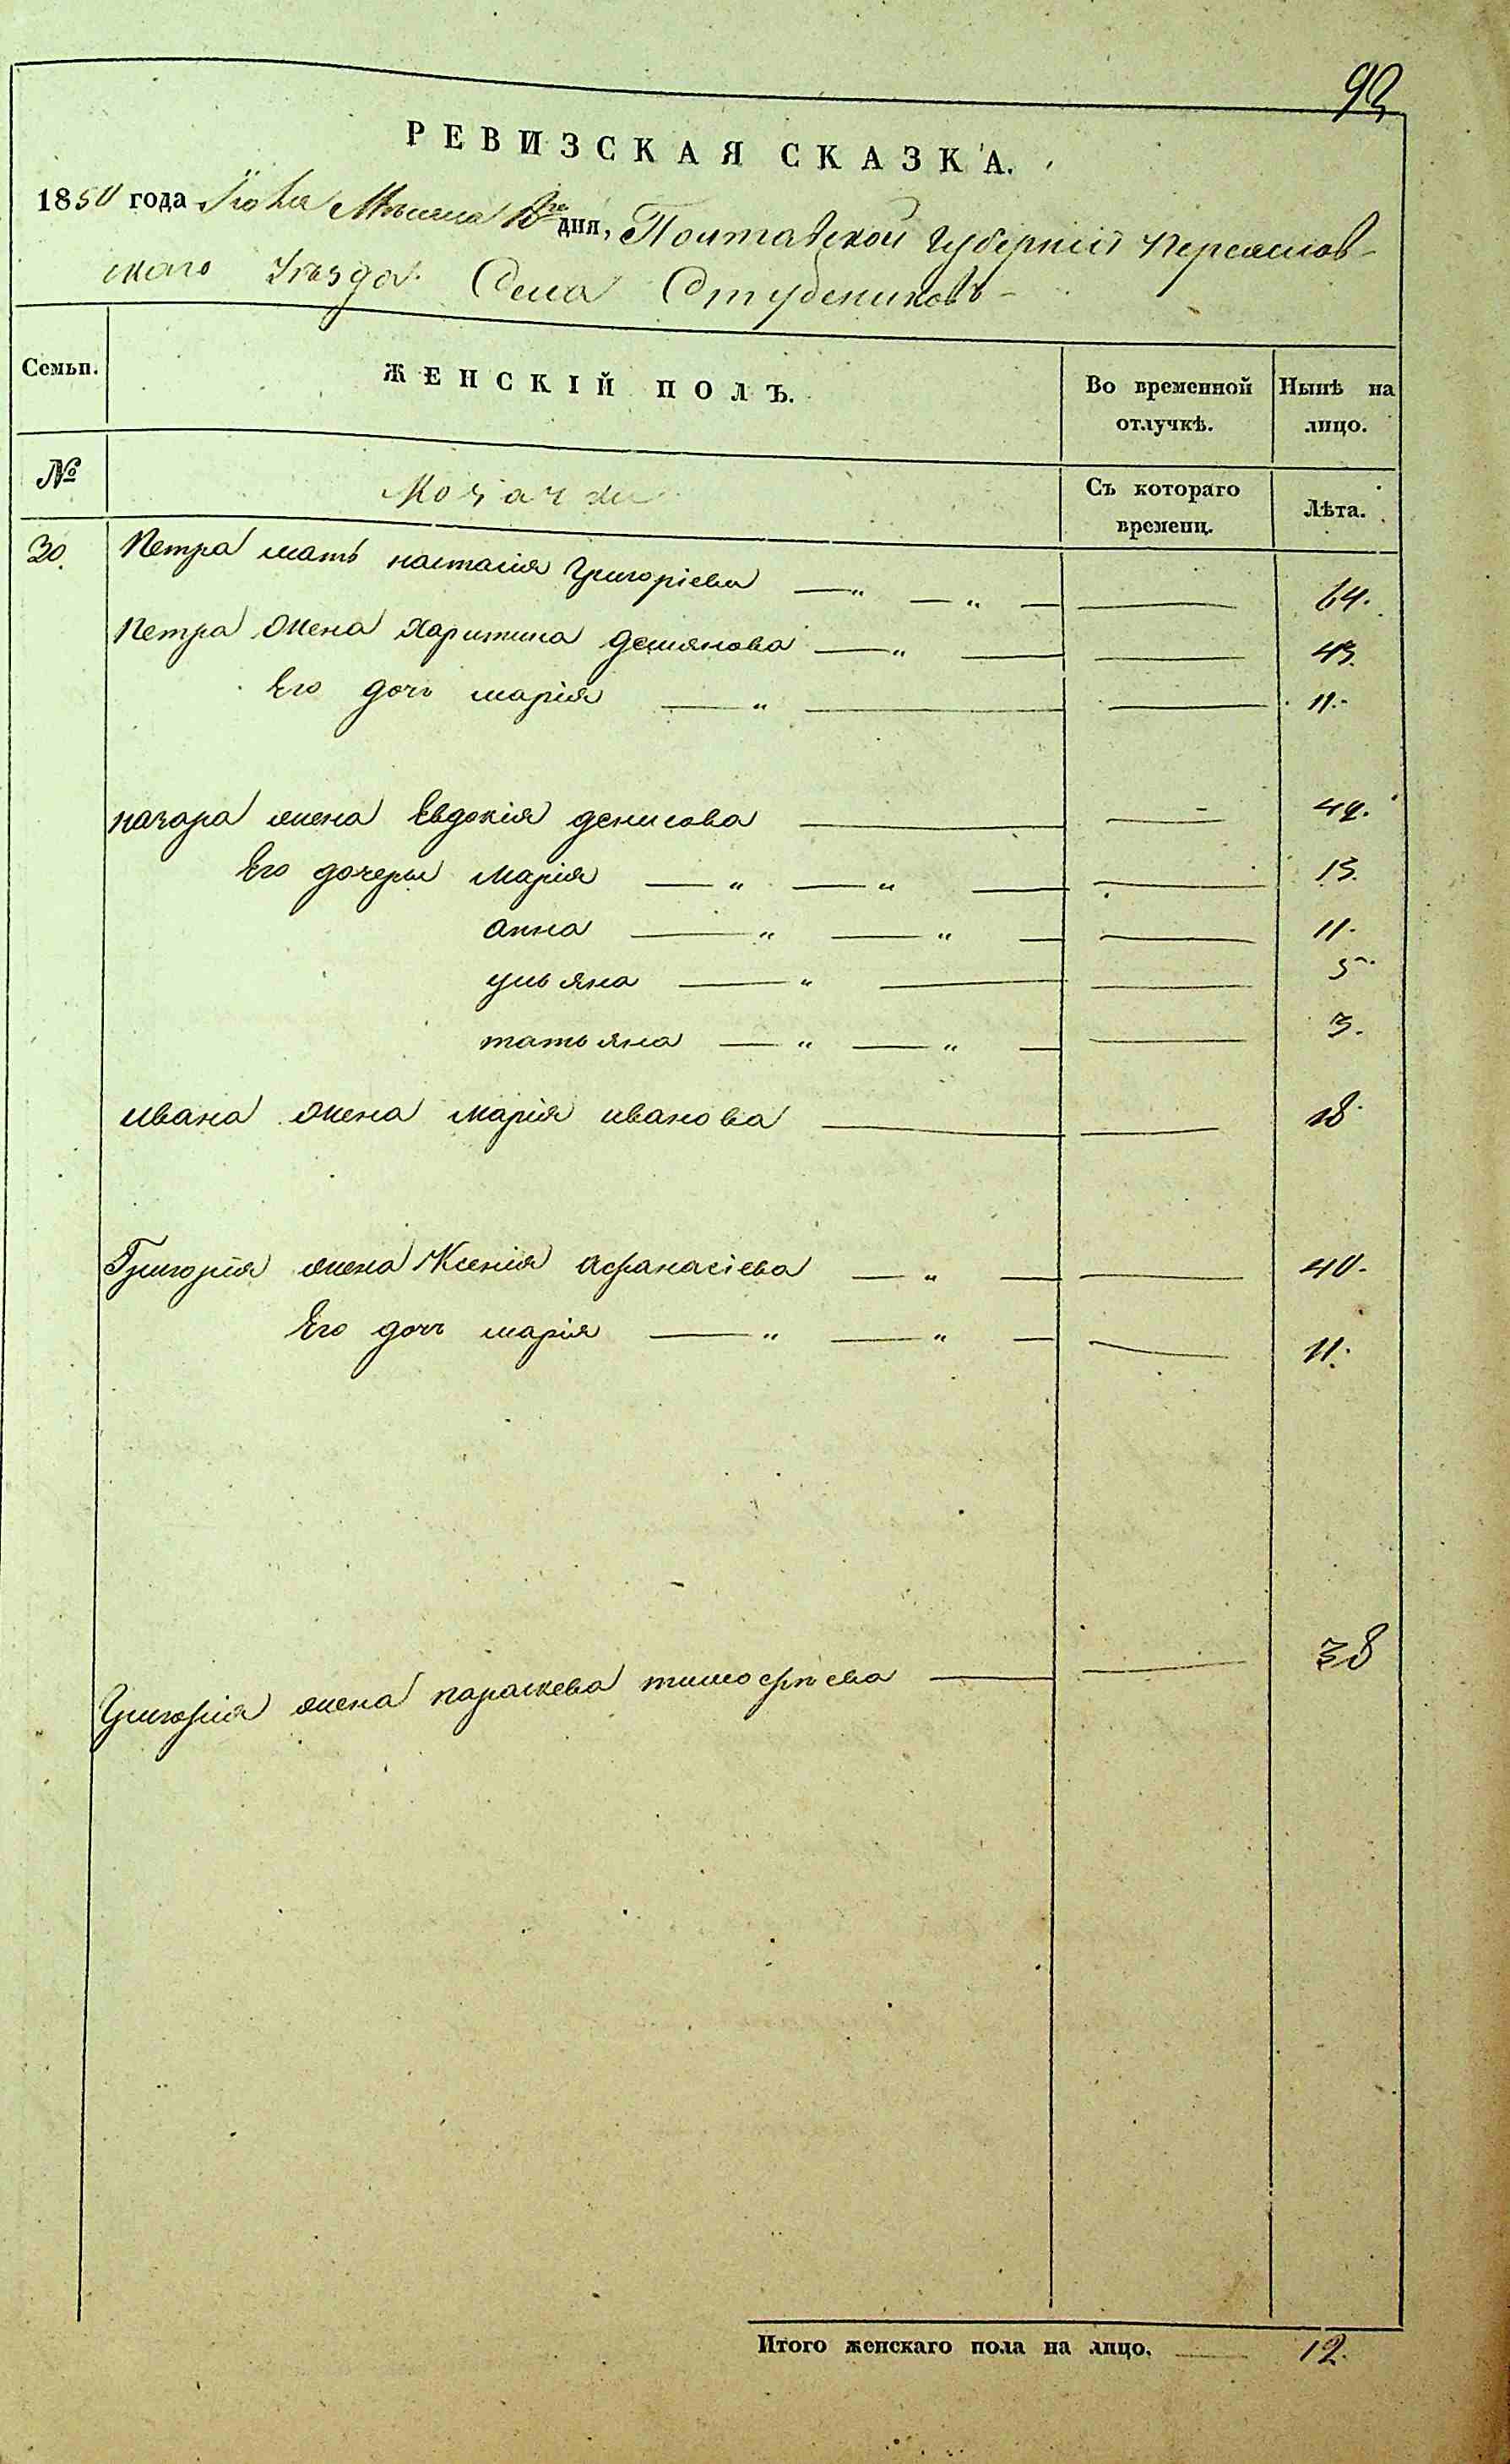 92
РЕВИЗСКАЯ СКАЗКА.
1850 года Іюня Мѣсяца дня, Полтавской Губерніи Переяслов-
скаго Уѣзда Села Студениковъ
Семьи. ЖЕНСКІЙ ПОЛЪ. Во временной отлучкѣ. Нынѣ на лицо.
№ Козачки Съ котораго времени. Лѣта.
30. Петра мать настасія Григоріева — „ — „ — — 64.
Петра жена Харитина демянова — „ — — 43.
Его дочь марія — „ — — 11.
назара жена Евдокія денисова — — 42.
Его дочеры марія — „ — „ — — 13.
анна — „ — „ — — 11.
ульяна — „ — — 5.
татьяна — „ — „ — — 3.
ивана жена марія иванова — — 18.
Григорія жена Ксенія афанасіева — „ — — 40.
Его дочь марія — „ — „ — — 11.
Григорія жена параскева тимофѣева — — 38
Итого женскаго пола на лицо. — 12.